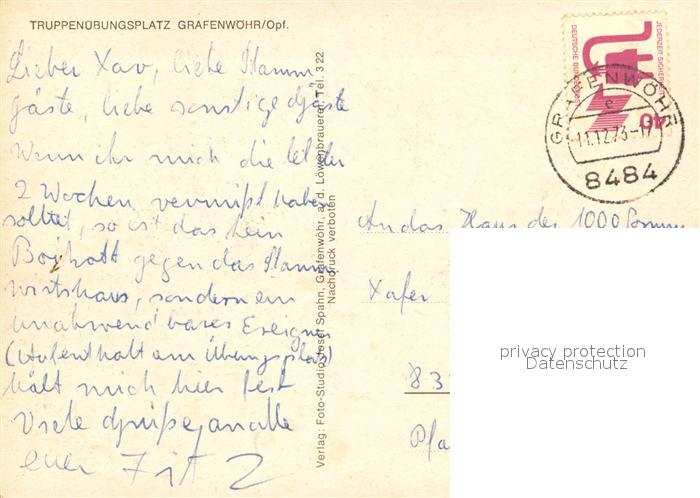 TRUPPENÜBUNGSPLATZ GRAFENWÖHR/Opf.
Lieber Xav, liebe Stamm
gäste, liebe sonstige Gäste
Wenn ihr mich die letzten
2 Wochen vermißt haben
solltet, so ist das kein
Boykott gegen das Stamm
wirtshaus, sondern ein
unabwendbares Ereignis
(Aufenthalt am Übungsplatz)
hält mich hier fest
Viele Grüße an alle
euer
Verlag: Foto-Studio Josef Spahn, Grafenwöhr, a. d. Löwenbrauerei, Tel. 3 22
Nachdruck verboten
DEUTSCHE BUNDESPOST
JEDERZEIT SICHERHEIT
40
GRAFENWÖHR
e
11.12.73-17
8484
An das Haus der 1000
Xafer
83
Pfa
privacy protection
Datenschutz